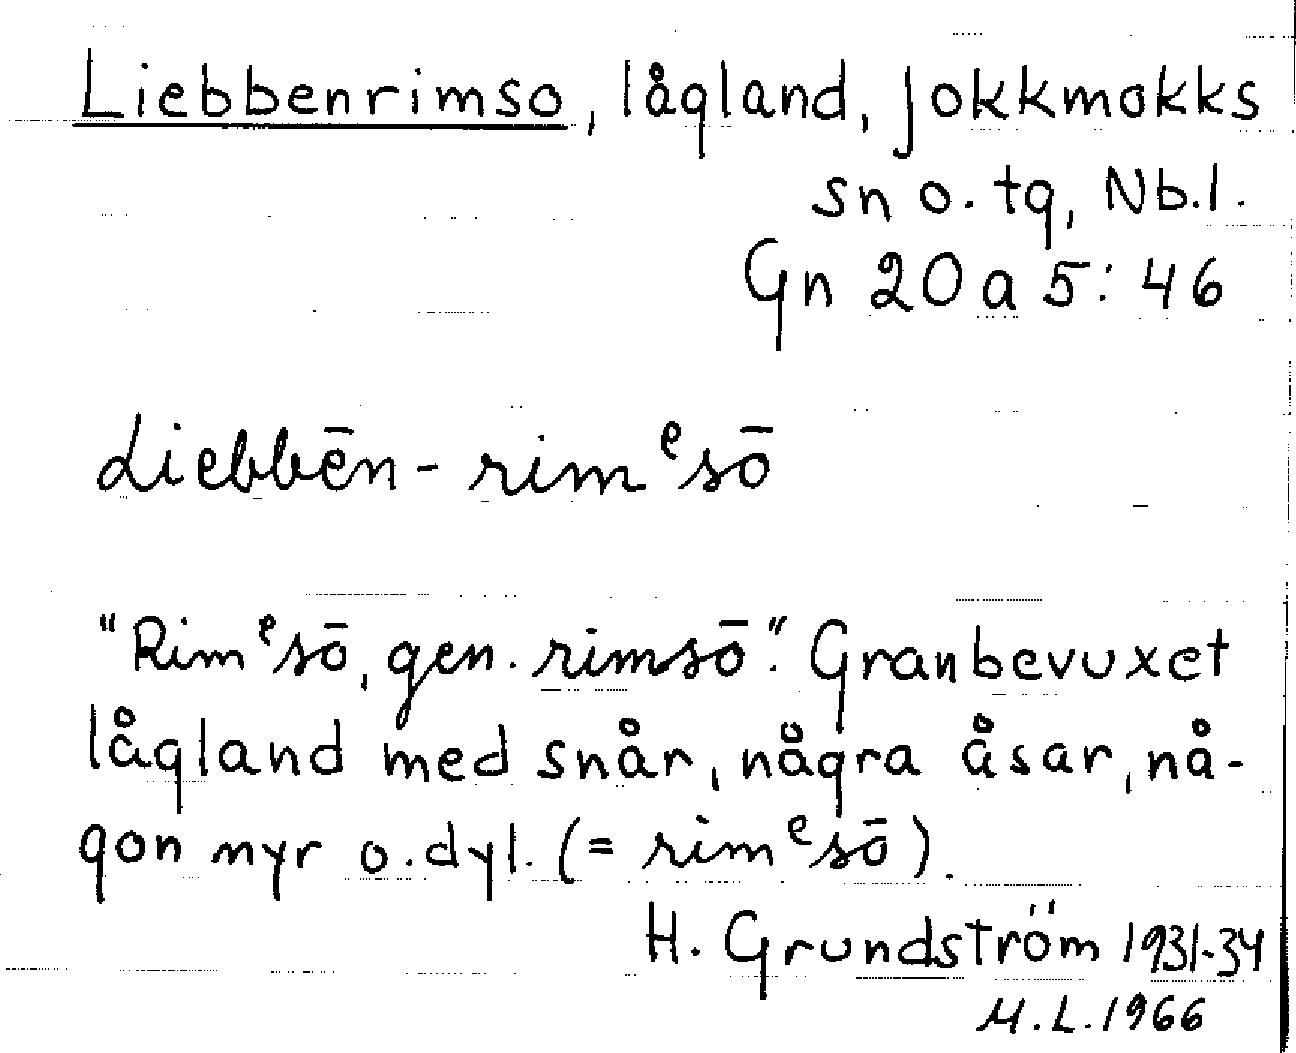 Liebbenrimso, lågland, Jokkmokks
sn o. tg, Nb.l.
Gn 20 a 5:46
Liebbēn-rimᵉsō
"Rimᵉsō, gen. rimsō". Granbevuxet
lågland med snår, några åsar, nå-
gon myr o.dyl. (= rimᵉsō).
H. Grundström 1931-34
M.L. 1966